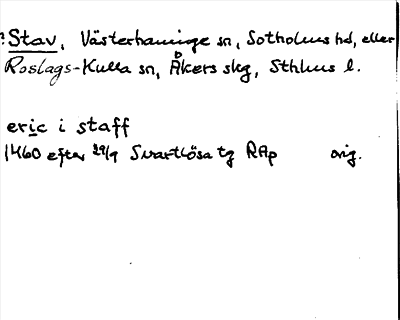 ?Stav, Västerhaninge sn, Sotholms hd, eller
Roslags-Kulla sn, Åkers skg, Sthlms l.
eric i staff
1460 efter 29/9 Svartlösa tg RAp orig.